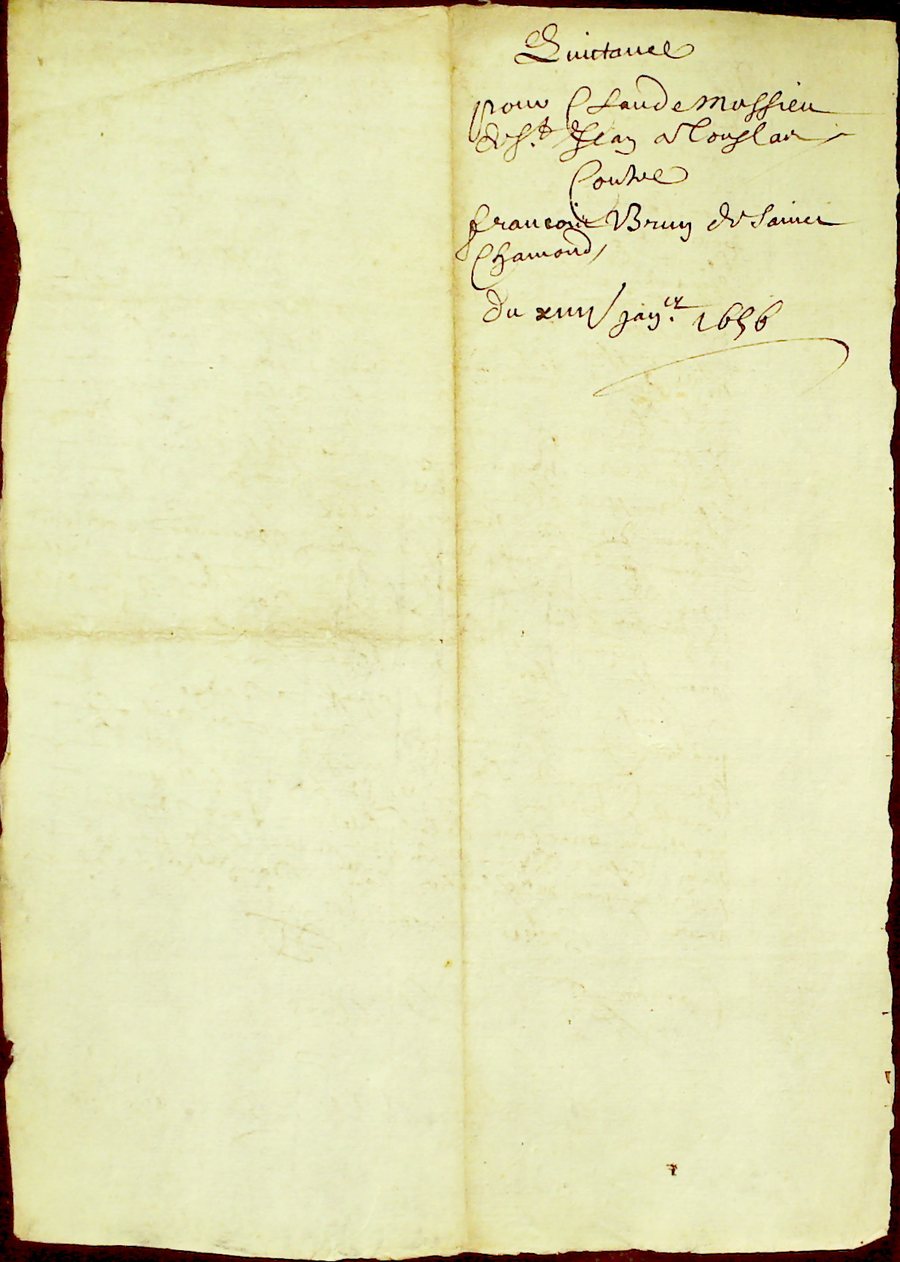 Quictance
pour Claude mussieu
de St. Jean a Touslas
Contre
francois Brun de Sainct
Chamond
du xiiij janer. 1656